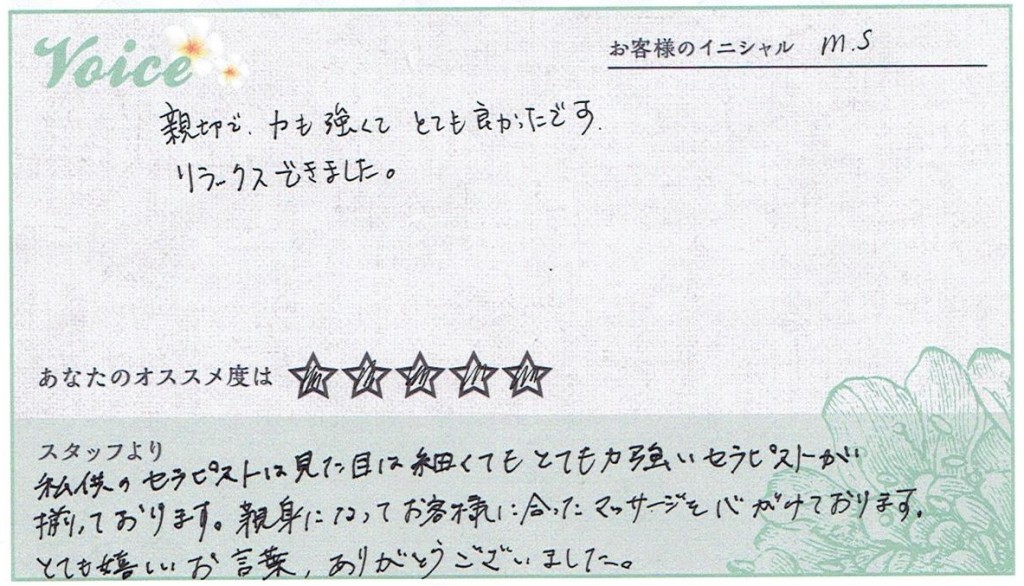 Voice
お客様のイニシャル M.S
親切で、力も強くて とても良かったです.
リラックスできました。
あなたのオススメ度は ★★★★★
スタッフより
私供のセラピストは見た目は細くてもとても力強いセラピストが
揃っております。親身になってお客様に合ったマッサージを心がけております。
とても嬉しいお言葉、ありがとうございました。